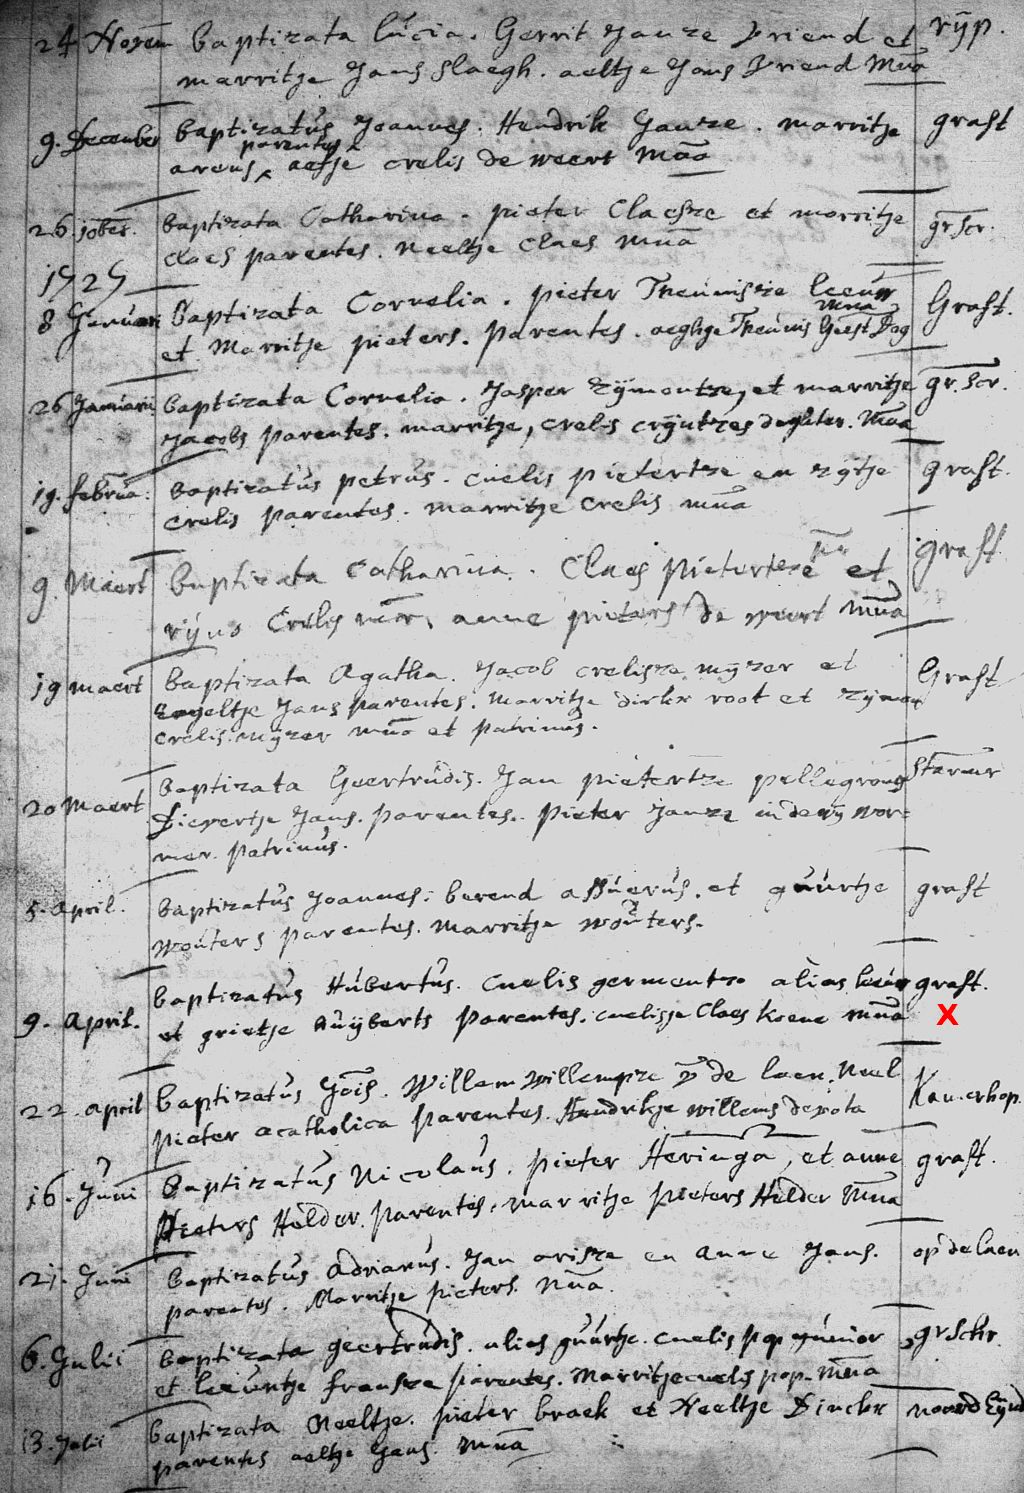 24 Novem baptizata lúcia. Gerrit Janze Vriend et rijp.
marritje Jans Slaegh. aeltje Jans Vriend mña
9. December baptizatús Joannes. Hendrik Janze. marritje graft
parentes
arens aefje crelis de weert mña
26. xobris. baptizata Catharina. pieter Claesze et marritje gr. Scr.
claes parentes. Neeltje claes mña
1725
8 Januari baptizata Cornelia. pieter Theunisze leeúw Graft.
mña
et Marritje pieters. parentes. aeghje Theunis Geest Dog
26 Januarii baptizata Cornelia. Jasper zÿmontze, et marritje gr. Scr.
Jacobs parentes. marritje, crelis crÿntzes doghter. mña
19. februa: baptizatús petrús. cnelis pietertze en zÿtje graft.
crelis parentes. marritje crelis mña
9. Maert baptizata Catharina. Claes pietertze et graft
rijns Crelis, anne pieters de weert mña
19 maert baptizata Agatha. Jacob crelisze mÿzer et Graft
Engeltje Jans parentes. Marritje dirks root et zÿmon
crelis mÿzer mña et patrinús.
20 Maert baptizata Geertrúdis. Jan pietertze pellegroms
Dievertje Jans. parentes. pieter Janze in de wÿ wor=
mer. patrinús.
5. april. baptizatús Joannes. berend assúerús. et gúúrtje graft
woúters parentes. Marritje woúters.
9. april. baptizatús Húbertús. cnelis germentze alias leeúw graft.
et grietje húÿberts parentes. cnelisje Claes koene mña X
22. april baptizatús Jois. Willem willempze v de laen. Neel
pieter acatholica parentes. Hendrikje willems devota
16. Júni baptizatús Nicolaús. pieter Heringa, et anne graft.
Pieters Helder. parentes, marritje pieters Helder mña
21. Juni baptizatús Adrianús. Jan arisze en Anne Jans. op de laen
parentes. Marritje pieters. mña.
6. Julii baptizata geertrúdis. alias gúúrtje. cnelis pop júnior gr Schr.
et leeúntje fransze parentes. Marritje cnelis pop. mña
13. Julii baptizata Neeltje. pieter braek et Neeltje Dirckx noord Eÿnd
parentes aeltje Jans. mña